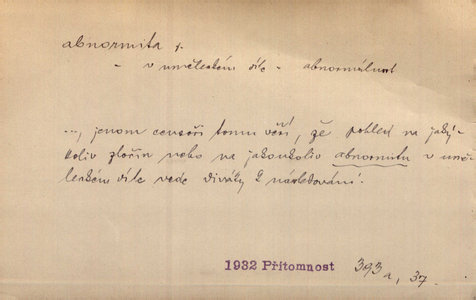 abnormita f.
- v uměleckém díle - abnormálnost
..., jenom censoři tomu věří, že pohled na jaký-
koliv zločin nebo na jakoukoliv abnormitu v umě-
leckém díle vede diváky k následování.
1932 Přítomnost 393a, 37.